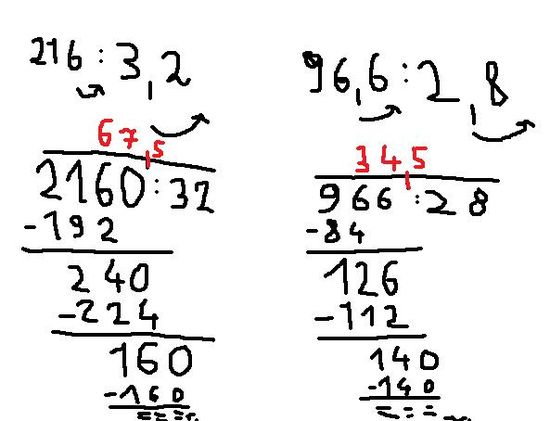 216 : 3,2
67,5
2160 : 32
-192
240
-224
160
-160
===
96,6 : 2,8
34,5
966 : 28
-84
126
-112
140
-140
===